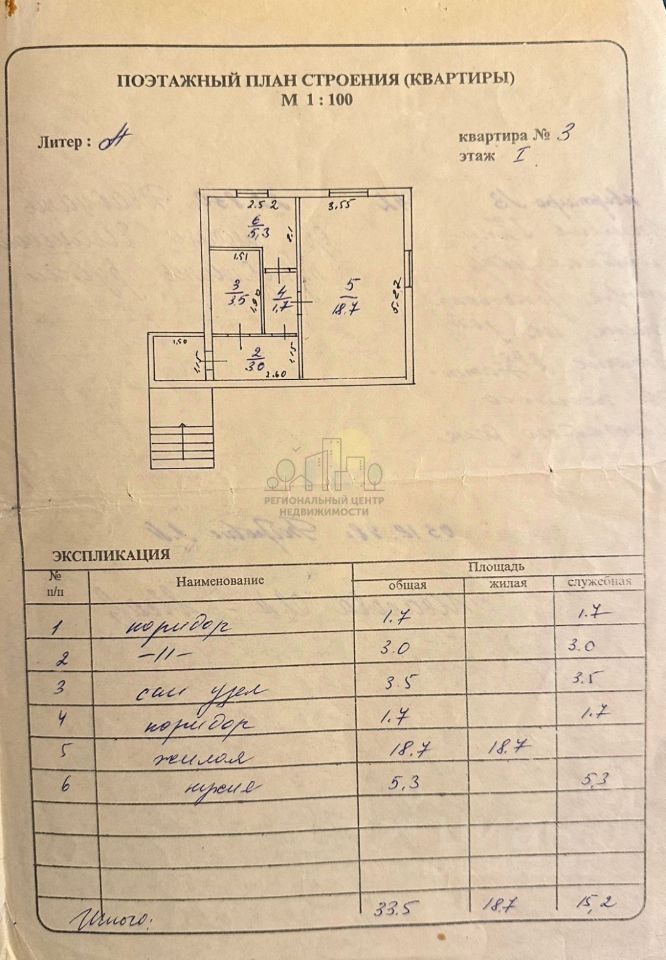 ПОЭТАЖНЫЙ ПЛАН СТРОЕНИЯ (КВАРТИРЫ)
М 1 : 100
Литер : А
квартира № 3
этаж I
2.52
3,55
6
5,3
1,51
3
3.5
4
1,7
5
18.7
5.22
1,50
2
3.0
2.60
РЕГИОНАЛЬНЫЙ ЦЕНТР
НЕДВИЖИМОСТИ
ЭКСПЛИКАЦИЯ
№ п/п Наименование Площадь
общая жилая служебная
1 коридор 1.7 1.7
2 -11- 3.0 3.0
3 сан узел 3.5 3.5
4 коридор 1.7 1.7
5 жилая 18,7 18.7
6 кухня 5,3 5,3
Итого: 33.5 18.7 15,2